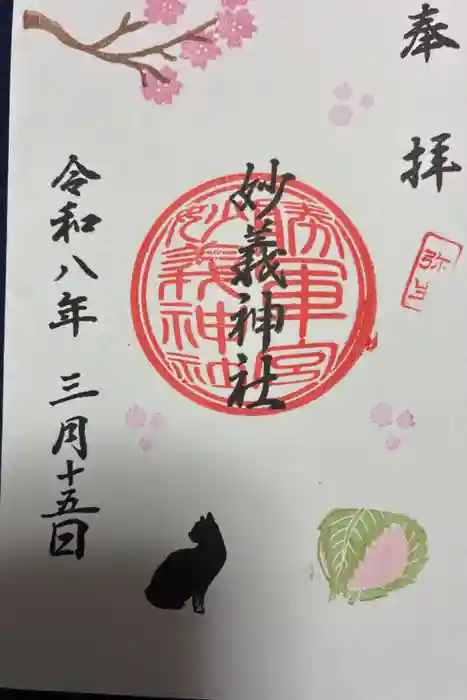 奉拝
弥生
妙義神社
勝軍宮
妙義神社
令和八年三月十五日